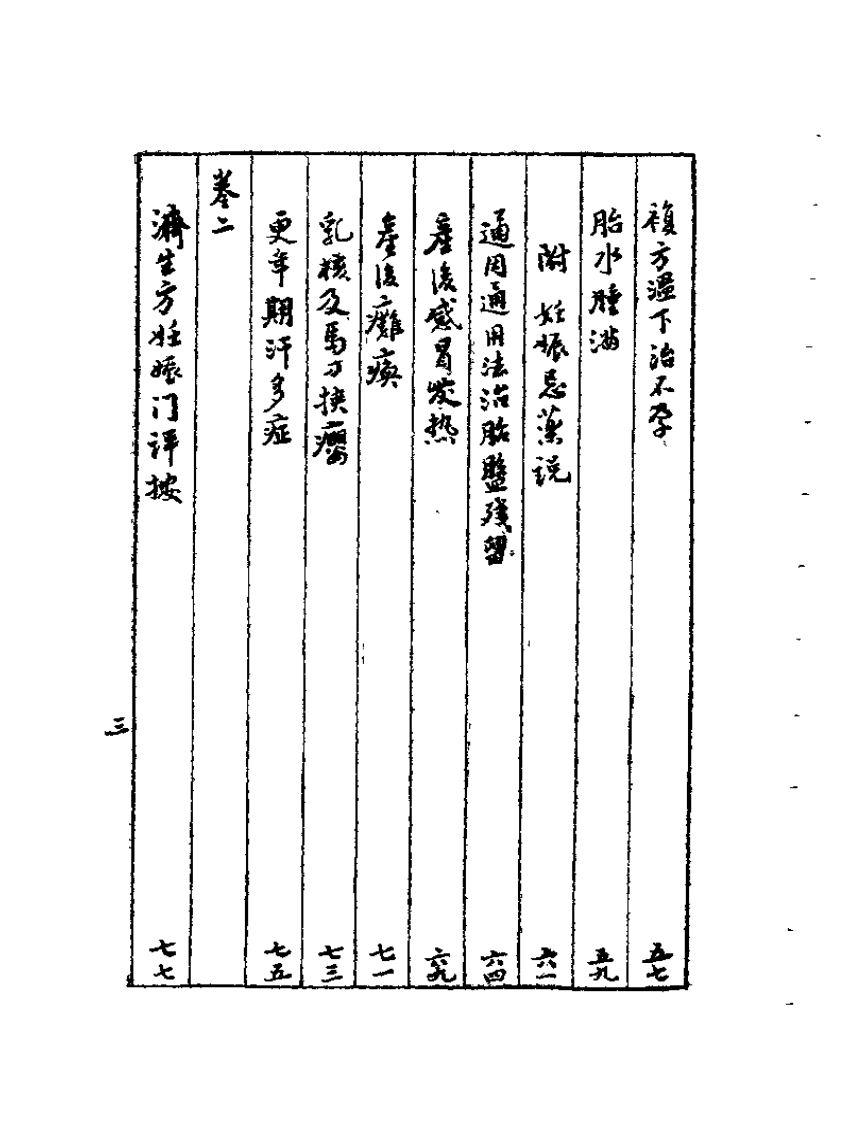 複方溫下治不孕 五七
胎水腫滿 五九
附 妊娠忌藥説 六一
通因通用法治胎盤残留 六四
產後感冒发热 六九
產後癱瘓 七一
乳核及馬刀挟癭 七三
更年期汗多症 七五
卷二
濟生方妊娠门评按 七七
三